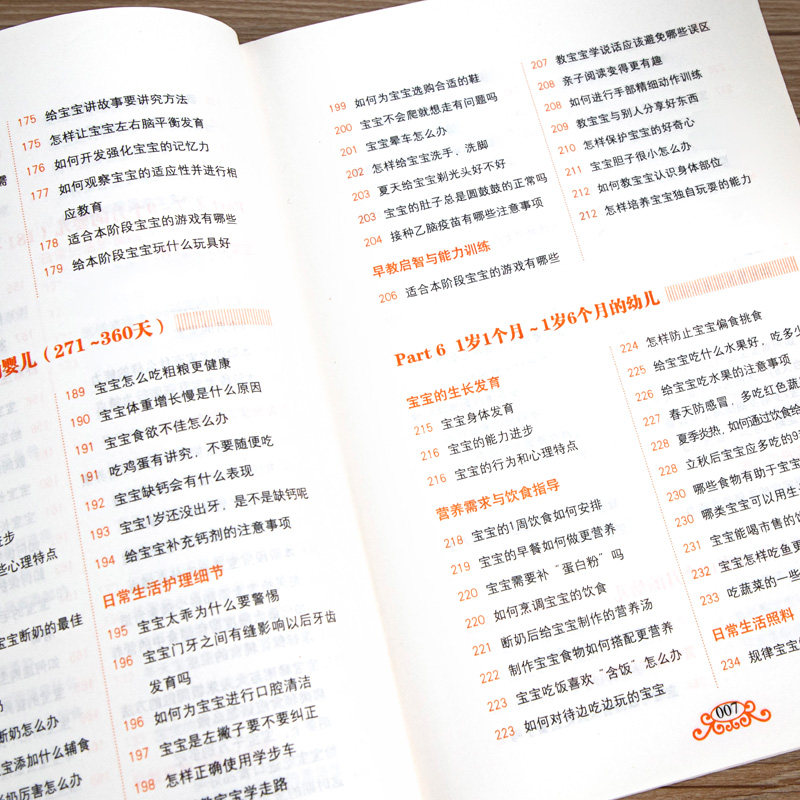 175 给宝宝讲故事要讲究方法
175 怎样让宝宝左右脑平衡发育
176 如何开发强化宝宝的记忆力
177 如何观察宝宝的适应性并进行相
应教育
178 适合本阶段宝宝的游戏有哪些
179 给本阶段宝宝玩什么玩具好
婴儿（271～360天）
步
些心理特点
宝宝断奶的最佳
断奶怎么办
宝添加什么辅食
奶厉害怎么办
189 宝宝怎么吃粗粮更健康
190 宝宝体重增长慢是什么原因
191 宝宝食欲不佳怎么办
191 吃鸡蛋有讲究，不要随便吃
192 宝宝缺钙会有什么表现
193 宝宝1岁还没出牙，是不是缺钙呢
194 给宝宝补充钙剂的注意事项
日常生活护理细节
195 宝宝太乖为什么要警惕
196 宝宝门牙之间有缝影响以后牙齿
发育吗
196 如何为宝宝进行口腔清洁
197 宝宝是左撇子要不要纠正
198 怎样正确使用学步车
宝宝学走路
199 如何为宝宝选购合适的鞋
200 宝宝不会爬就想走有问题吗
201 宝宝晕车怎么办
202 怎样给宝宝洗手，洗脚
203 夏天给宝宝剃光头好不好
203 宝宝的肚子总是圆鼓鼓的正常吗
204 接种乙脑疫苗有哪些注意事项
早教启智与能力训练
206 适合本阶段宝宝的游戏有哪些
207 教宝宝学说话应该避免哪些误区
208 亲子阅读变得更有趣
208 如何进行手部精细动作训练
209 教宝宝与别人分享好东西
210 怎样保护宝宝的好奇心
211 宝宝胆子很小怎么办
212 如何教宝宝认识身体部位
212 怎样培养宝宝独自玩耍的能力
Part 6 1岁1个月～1岁6个月的幼儿
宝宝的生长发育
215 宝宝身体发育
216 宝宝的能力进步
216 宝宝的行为和心理特点
营养需求与饮食指导
218 宝宝的1周饮食如何安排
219 宝宝的早餐如何做更营养
220 宝宝需要补“蛋白粉”吗
220 如何烹调宝宝的饮食
221 断奶后给宝宝制作的营养汤
222 制作宝宝食物如何搭配更营养
223 宝宝吃饭喜欢“含饭”怎么办
223 如何对待边吃边玩的宝宝
224 怎样防止宝宝偏食挑食
225 给宝宝吃什么水果好，吃多少
226 给宝宝吃水果的注意事项
227 春天防感冒，多吃红色蔬
228 夏季炎热，如何通过饮食给
228 立秋后宝宝应多吃的9
230 哪些食物有助于宝宝
230 哪类宝宝可以用生
231 宝宝能喝市售的
232 宝宝怎样吃鱼更
233 吃蔬菜的一些
日常生活照料
234 规律宝宝
007